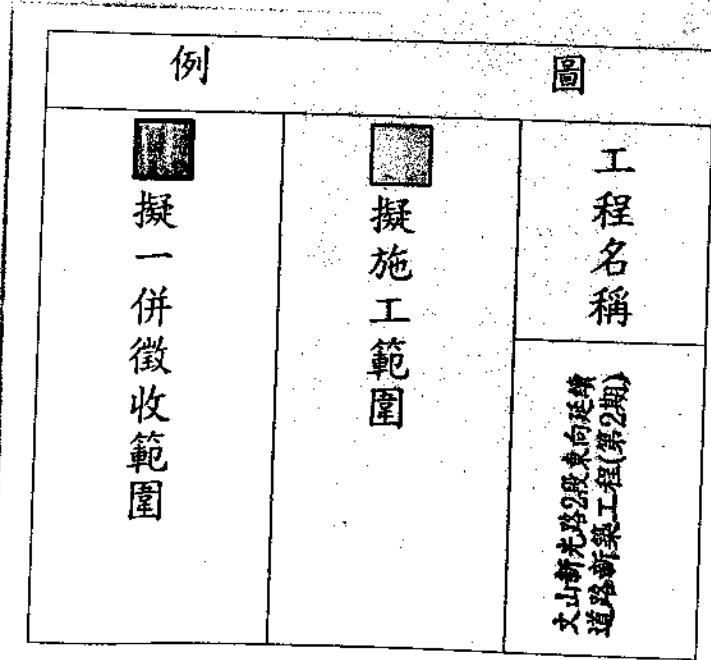 圖例
工程名稱
文山新光路2段東向延續
道路新築工程(第2期)
擬施工範圍
擬一併徵收範圍